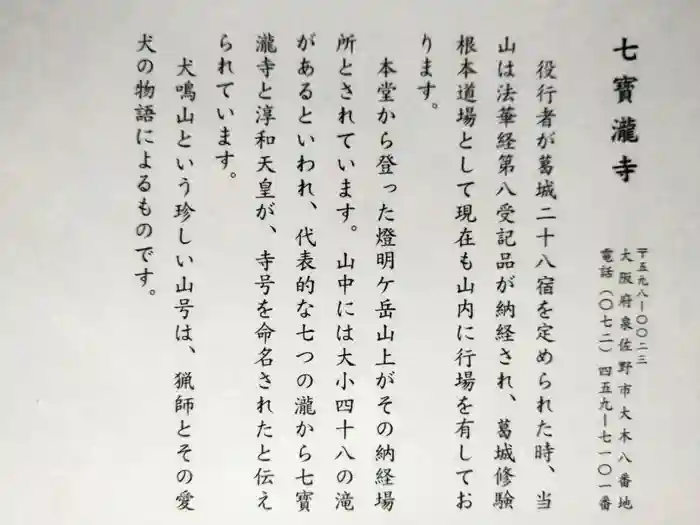 七寶瀧寺
〒五九八ー〇〇二三
大阪府泉佐野市大木八番地
電話（〇七二）四五九ー七一〇一番
役行者が葛城二十八宿を定められた時、当
山は法華経第八受記品が納経され、葛城修験
根本道場として現在も山内に行場を有してお
ります。
本堂から登った燈明ケ岳山上がその納経場
所とされています。山中には大小四十八の滝
があるといわれ、代表的な七つの瀧から七寶
瀧寺と淳和天皇が、寺号を命名されたと伝え
られています。
犬鳴山という珍しい山号は、猟師とその愛
犬の物語によるものです。